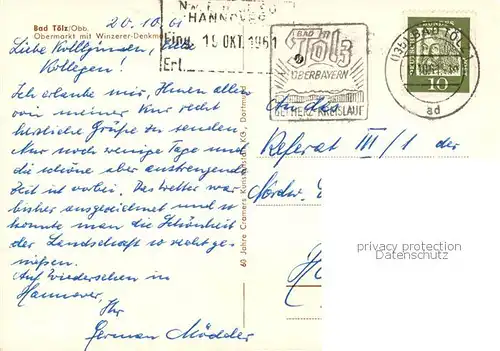 Bad Tölz/Obb.
Obermarkt mit Winzerer-Denkmal
20.10.61
Liebe Kolleginnen, liebe
Kollegen!
Ich erlaube mir, Ihnen allen
von meiner Kur recht
herzliche Grüße zu senden.
Nur noch wenige Tage und
die schöne aber anstrengende
Zeit ist vorbei. Das Wetter war
bisher ausgezeichnet und so
konnte man die Schönheit
der Landschaft so recht ge-
nießen.
Auf Wiedersehen in
Hannover,
Ihr
60 Jahre Cramers Kunstanstalt KG., Dortmund
HANNOVER
Eing. 19 OKT. 1961
Erl.
BAD
Tölz
OBERBAYERN
BEI HERZ-KREISLAUF
BAD TÖLZ
ad
10
An das
Referat III/1 der
privacy protection
Datenschutz